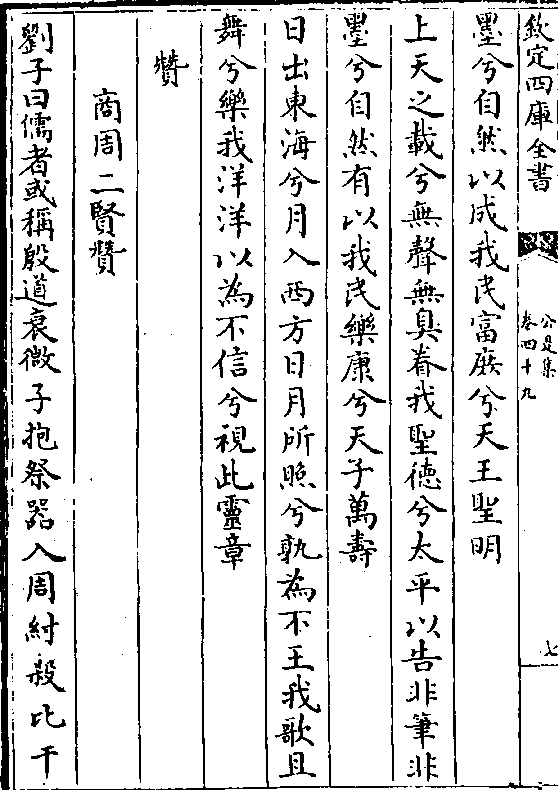 欽定四庫全書
公是集
卷四十九
七
墨兮自然以成我民富庶兮天王聖明
上天之載兮無聲無臭眷我聖德兮太平以告非筆非
墨兮自然有以我民樂康兮天子萬壽
日出東海兮月入西方日月所照兮孰為不王我歌且
舞兮樂我洋洋以為不信兮視此靈章
贊
商周二賢贊
劉子曰儒者或稱殷道衰微子抱祭器入周紂殺比干